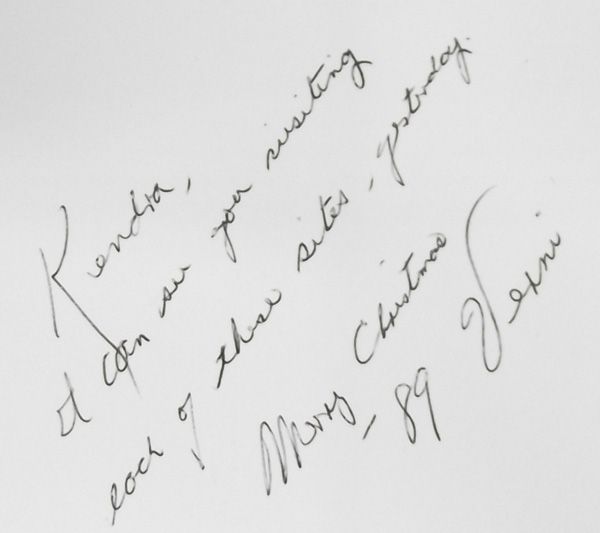 Kendra,
I can see you visiting
each of these sites, yesterday.
Merry Christmas
- 89